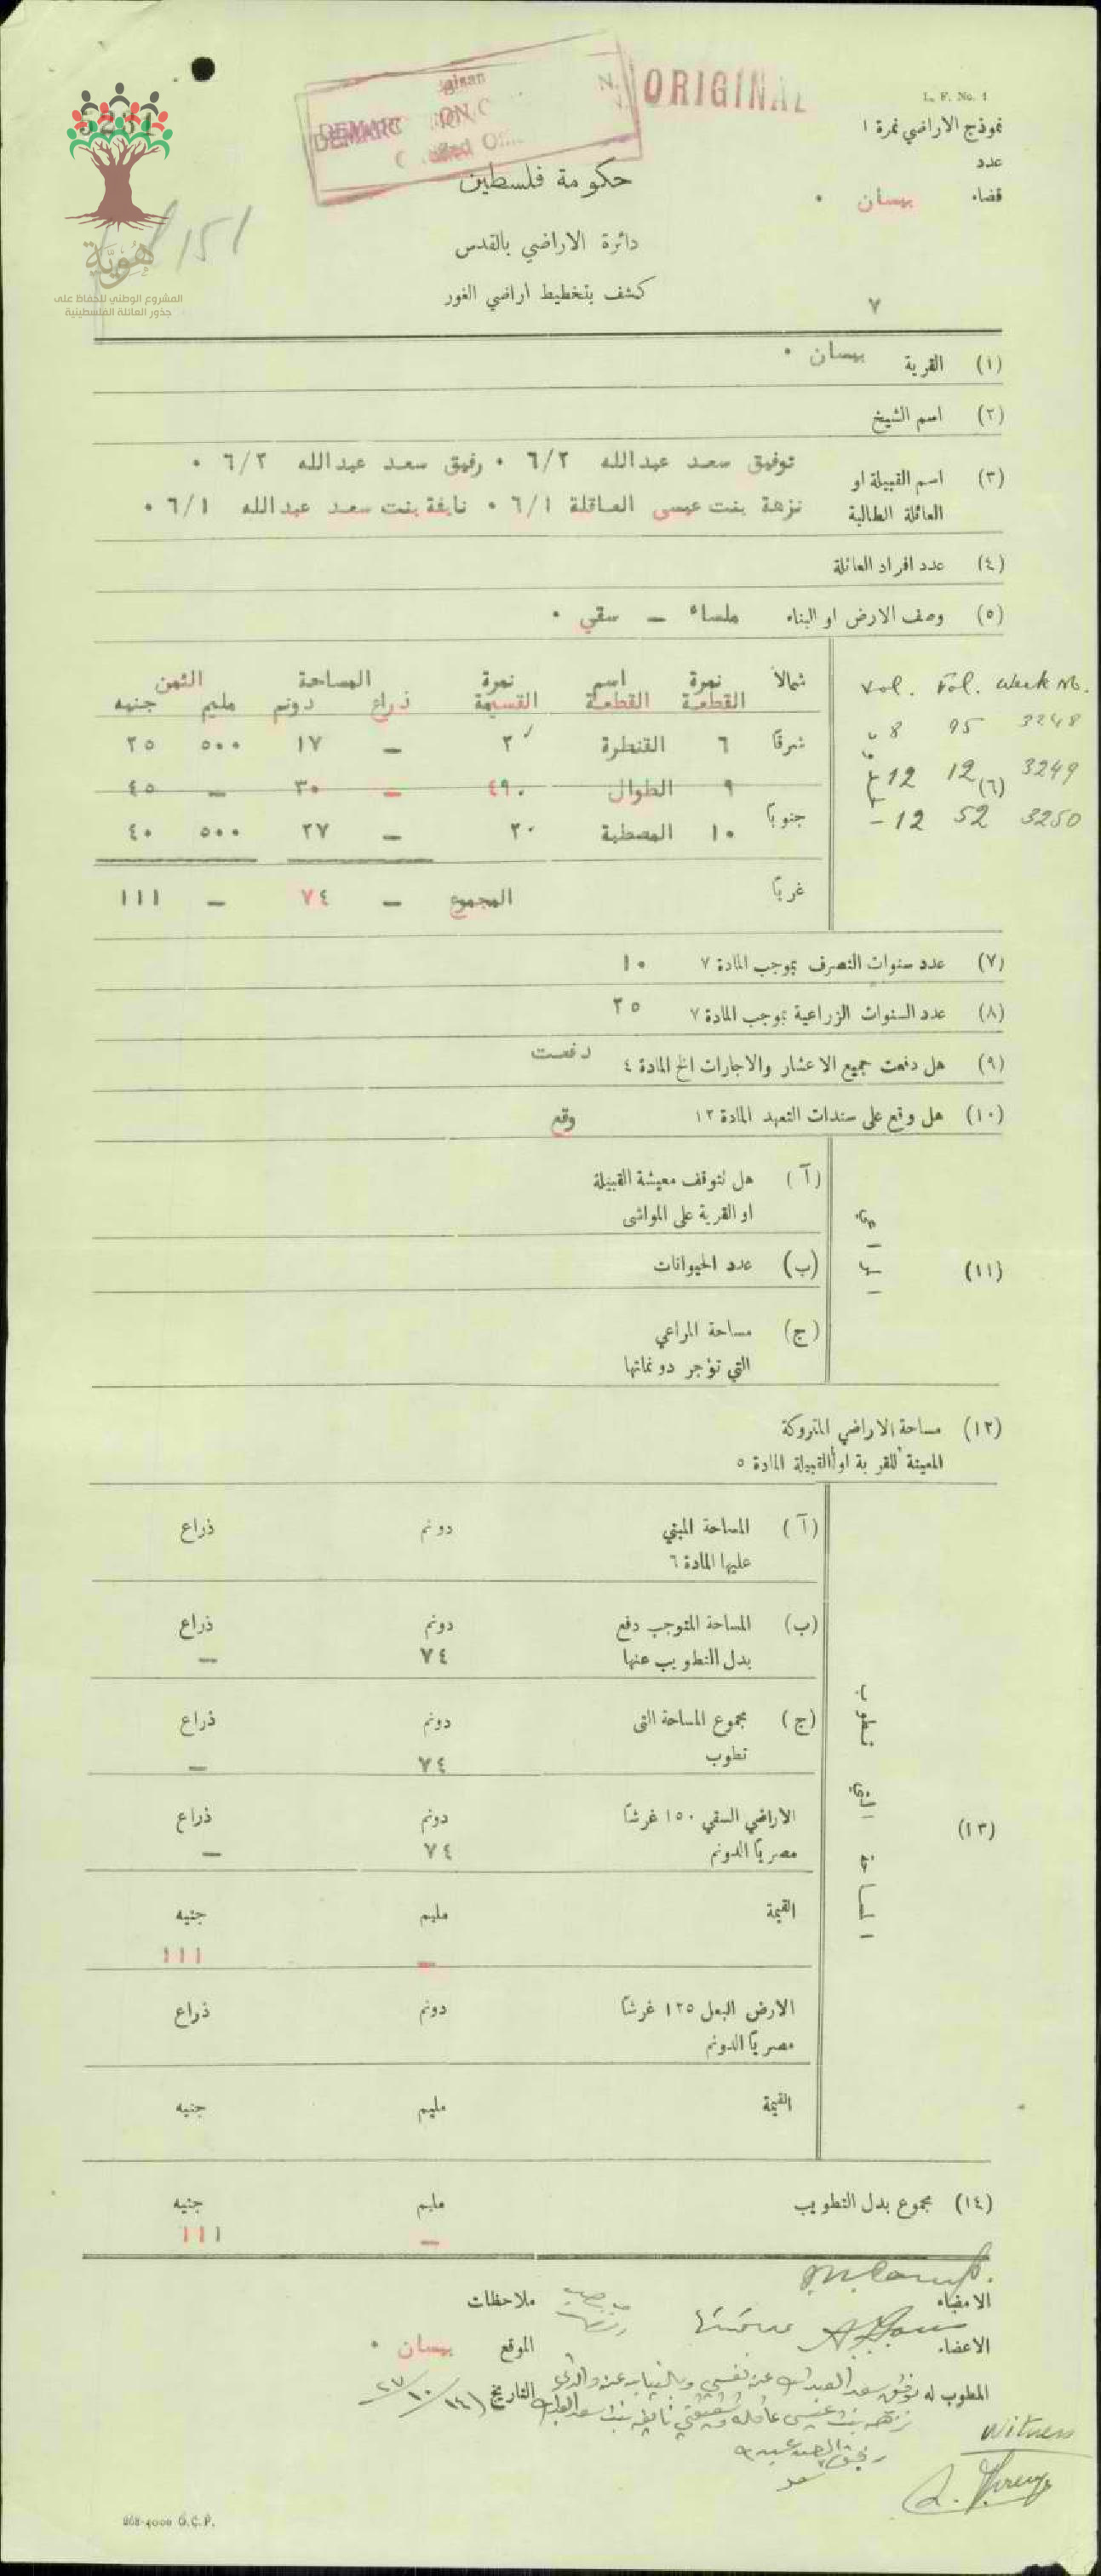 ORIGINAL
L. F. No. 1
نموذج الاراضي نمرة ١
عدد
قضاء بيسان •
DEMARC
5251
151
هُوِيَّة
المشروع الوطني للحفاظ على
جذور العائلة الفلسطينية
حكومة فلسطين
دائرة الاراضي بالقدس
كشف بتخطيط اراضي الغور
٧
(١) القرية بيسان •
(٢) اسم الشيخ
(٣) اسم القبيلة او توفيق سعد عبدالله ٦/٢ • رفيق سعد عبدالله ٦/٢ •
العائلة الطالبة نزهة بنت عيسى العاقلة ٦/١ • نايفة بنت سعد عبدالله ٦/١ •
(٤) عدد افراد العائلة
(٥) وصف الارض او البناء ملساء – سقي •
Vol. Fol. Week No.
8 95 3248
12 12 3249
12 52 3250
(٦)
شمالاً نمرة اسم نمرة المساحة الثمن
القطعة القطعة القسيمة ذراع دونم مليم جنيه
شرقاً ٦ القنطرة ٢ – ١٧ ٥٠٠ ٢٥
٩ الطوال ٤٩ – ٣٠ – ٤٥
جنوباً ١٠ المصطبة ٢٠ – ٢٧ ٥٠٠ ٤٠
غرباً المجموع – ٧٤ – ١١١
(٧) عدد سنوات التصرف بموجب المادة ٧ ١٠
(٨) عدد السنوات الزراعية بموجب المادة ٧ ٢٥
(٩) هل دفعت جميع الاعشار والاجارات الخ المادة ٤ دفعت
(١٠) هل وقع على سندات التعهد المادة ١٢ وقع
(١١)
(آ) هل تتوقف معيشة القبيلة
او القرية على المواشي
(ب) عدد الحيوانات
(ج) مساحة المراعي
التي تؤجر دونماتها
(١٢) مساحة الاراضي المتروكة
المعينة للقرية او القبيلة المادة ٥
(١٣)
(آ) المساحة المبني دونم ذراع
عليها المادة ٦
(ب) المساحة المتوجب دفع دونم ذراع
بدل التطويب عنها ٧٤ –
(ج) مجموع المساحة التي دونم ذراع
تطوب ٧٤ –
الاراضي السقي ١٥٠ غرشاً دونم ذراع
مصرياً الدونم ٧٤ –
القيمة مليم جنيه
– ١١١
الارض البعل ١٢٥ غرشاً دونم ذراع
مصرياً الدونم
القيمة مليم جنيه
(١٤) مجموع بدل التطويب مليم جنيه
– ١١١
الامضاء ملاحظات
الاعضاء الموقع بيسان •
المطوب له توفيق سعد العبدالله عن نفسي وبالنيابة عن والدتي
نزهه بنت عيسى عاقله وشقيقتي نايفه بنت سعد العبدالله
التاريخ
Witness
868-4000 G.C.P.